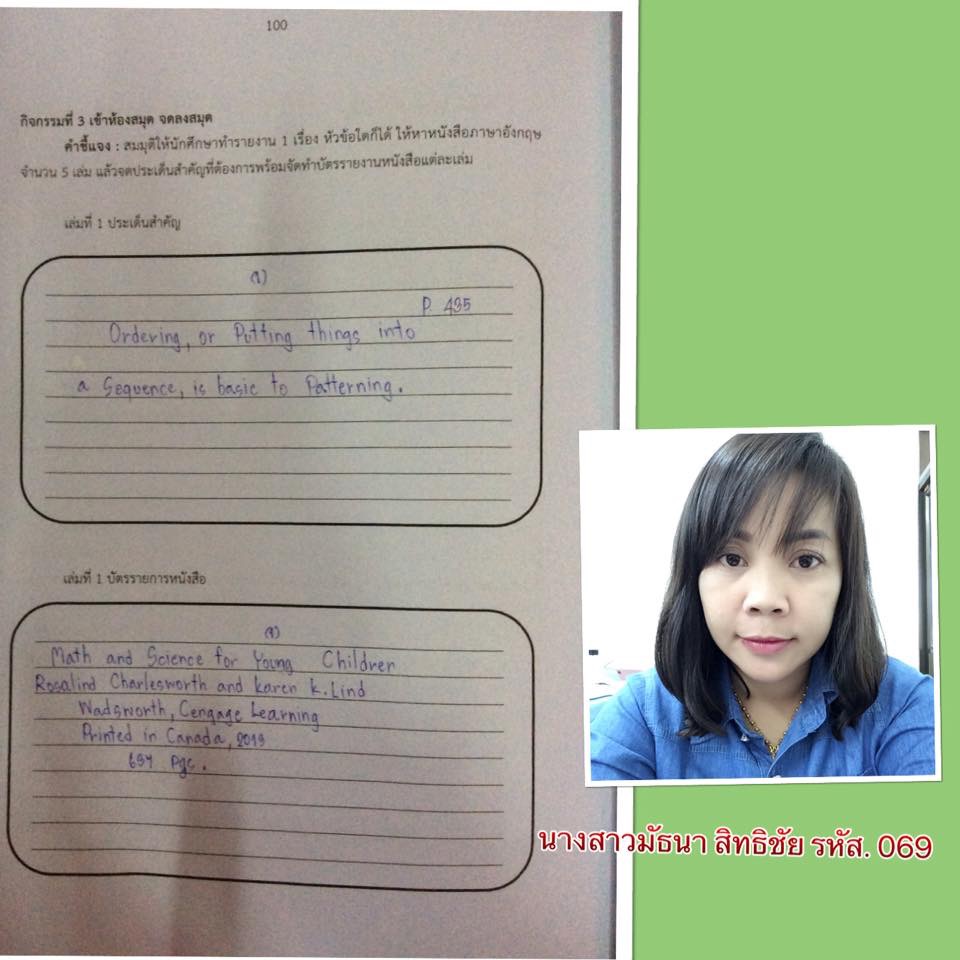 100
กิจกรรมที่ 3 เข้าห้องสมุด จดลงสมุด
คำชี้แจง : สมมุติให้นักศึกษาทำรายงาน 1 เรื่อง หัวข้อใดก็ได้ ให้หาหนังสือภาษาอังกฤษ
จำนวน 5 เล่ม แล้วจดประเด็นสำคัญที่ต้องการพร้อมจัดทำบัตรรายงานหนังสือแต่ละเล่ม
เล่มที่ 1 ประเด็นสำคัญ
(1)
P. 435
Ordering, or Putting things into
a Sequence, is basic to Patterning.
เล่มที่ 1 บัตรรายการหนังสือ
(1)
Math and Science for Young Children
Rosalind Charlesworth and Karen K. Lind
Wadsworth, Cengage Learning
Printed in Canada, 2013
Pgc.
นางสาวมัธนา สิทธิชัย รหัส. 069